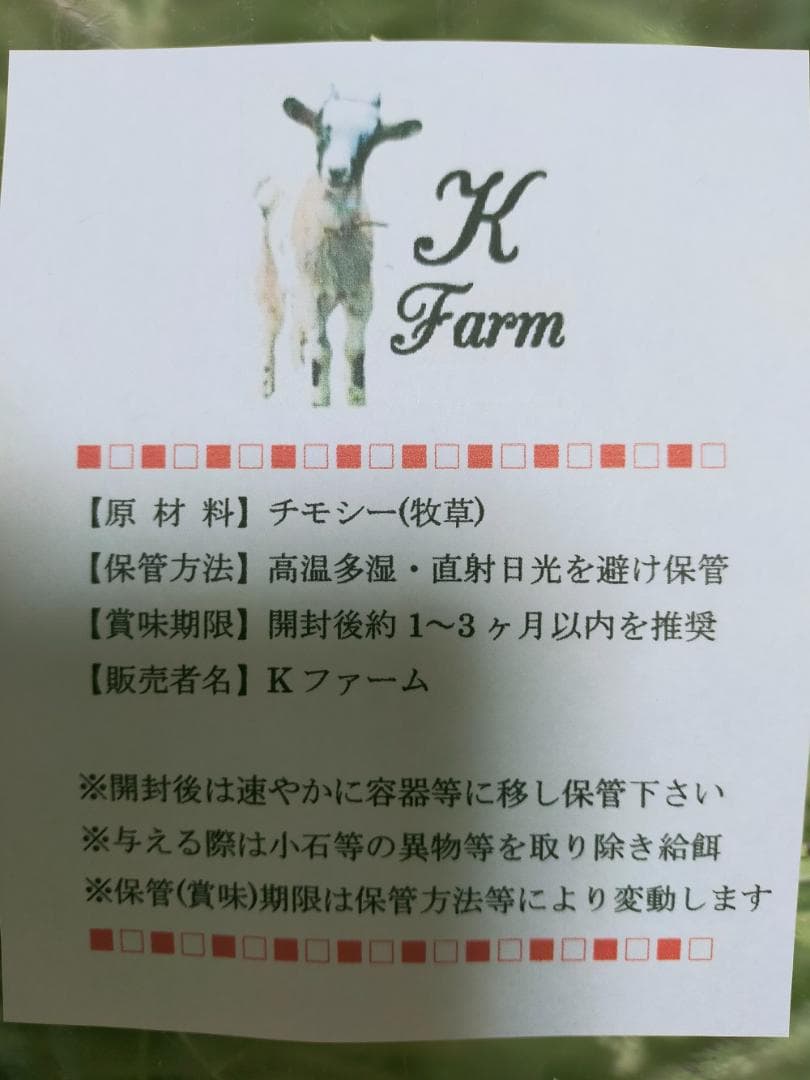 K
Farm
【原 材 料】チモシー(牧草)
【保管方法】高温多湿・直射日光を避け保管
【賞味期限】開封後約 1～3 ヶ月以内を推奨
【販売者名】K ファーム
※開封後は速やかに容器等に移し保管下さい
※与える際は小石等の異物等を取り除き給餌
※保管(賞味)期限は保管方法等により変動します